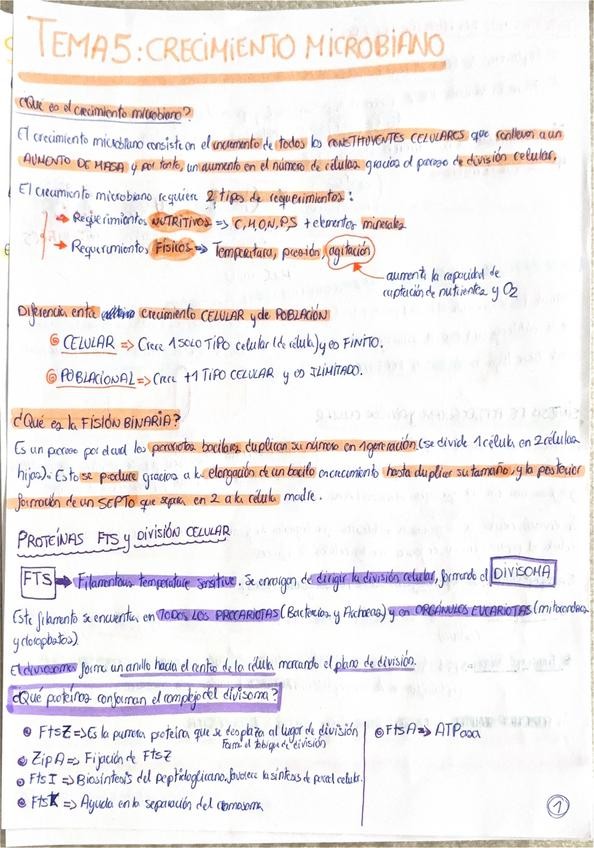 TEMA 5: CRECIMIENTO MICROBIANO
¿Qué es el crecimiento microbiano?
El crecimiento microbiano consiste en el incremento de todos los CONSTITUYENTES CELULARES que conllevan a un
AUMENTO DE MASA y por tanto, un aumento en el número de células gracias al proceso de división celular.
El crecimiento microbiano requiere 2 tipos de requerimientos:
→ Requerimientos NUTRITIVOS => C, H, O, N, P, S + elementos minerales
→ Requerimientos FÍSICOS => Temperatura, presión, agitación
aumenta la capacidad de
captación de nutrientes y O2
Diferencia entre crecimiento CELULAR y de POBLACIÓN
CELULAR => Crece 1 SOLO TIPO celular (de célula) y es FINITO.
POBLACIONAL => Crece +1 TIPO CELULAR y es ILIMITADO.
¿Qué es la FISIÓN BINARIA?
Es un proceso por el cual los procariotas bacilares duplican su número en 1 generación (se divide 1 célula en 2 células
hijas). Esto se produce gracias a la elongación de un bacilo en crecimiento hasta duplicar su tamaño, y la posterior
formación de un SEPTO que separa en 2 a la célula madre.
PROTEÍNAS FTS y DIVISIÓN CELULAR
FTS → Filamentous temperature sensitive. Se encargan de dirigir la división celular, formando el DIVISOMA
Este filamento se encuentra en TODOS LOS PROCARIOTAS (Bacterias y Archaeas) y en ORGÁNULOS EUCARIOTAS (mitocondrias
y cloroplastos).
El divisoma forma un anillo hacia el centro de la célula marcando el plano de división.
¿Qué proteínas conforman el complejo del divisoma?
FtsZ => Es la primera proteína que se desplaza al lugar de división
Forma el tabique de división
ZipA => Fijación de FtsZ
FtsI => Biosíntesis del peptidoglicano, favorece la síntesis de pared celular.
FtsK => Ayuda en la separación del cromosoma
FtsA => ATPasa
1